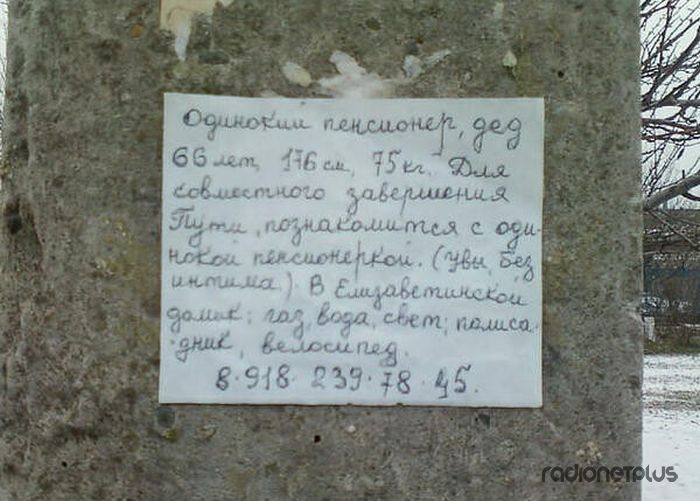 Одинокий пенсионер, дед
66 лет, 176 см, 75 кг. Для
совместного завершения
Пути, познакомится с оди-
нокой пенсионеркой. (Увы, без
интима). В Елизаветинской
домик: газ, вода, свет; полиса-
дник, велосипед.
8·918·239·78·45.
radionetplus